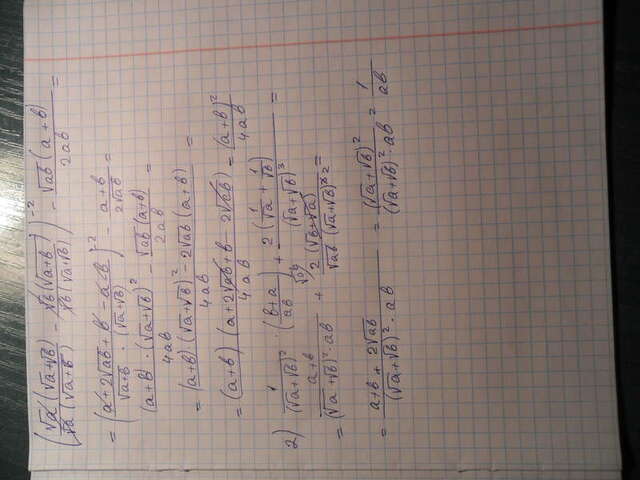 (√a(√a+√b)/√a(√a+√b) − √b(√a+b)/√b(√a+√b))⁻² − √ab(a+b)/2ab =
= (a+2√ab+b−a−b/√a+b (√a+√b))⁻² − a+b/2√ab =
(a+b)·(√a+√b)²/4ab − √ab(a+b)/2ab =
= (a+b)(√a+√b)²−2√ab(a+b)/4ab =
= (a+b)(a+2√ab+b−2√ab)/4ab = (a+b)²/4ab
2) 1/(√a+√b)² · (b+a/ab) + 2(1/√a+1/√b)/(√a+√b)³ =
= a+b/(√a+√b)²·ab + 2(√b+√a)/√ab(√a+√b)³ =
= a+b+2√ab/(√a+√b)²·ab = (√a+√b)²/(√a+√b)²·ab = 1/ab